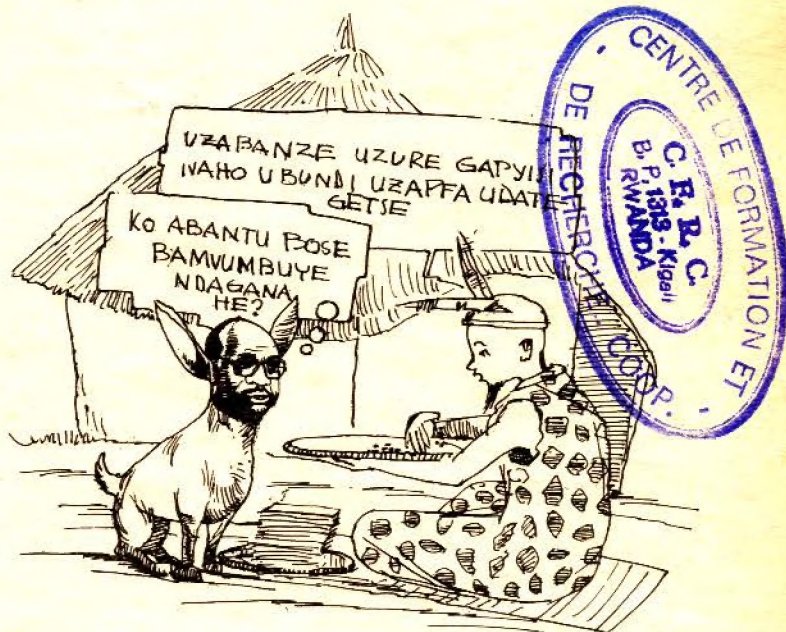 UZABANZE UZURE GAPYISI
NAHO UBUNDI UZAPFA UDATE-
GETSE
KO ABANTU BOSE
BAMVUMBUYE
NDAGANA
HE?
CENTRE DE FORMATION ET
DE RECHERCHE COOP.
C.F.R.C.
B.P. 1313 - Kigali
RWANDA